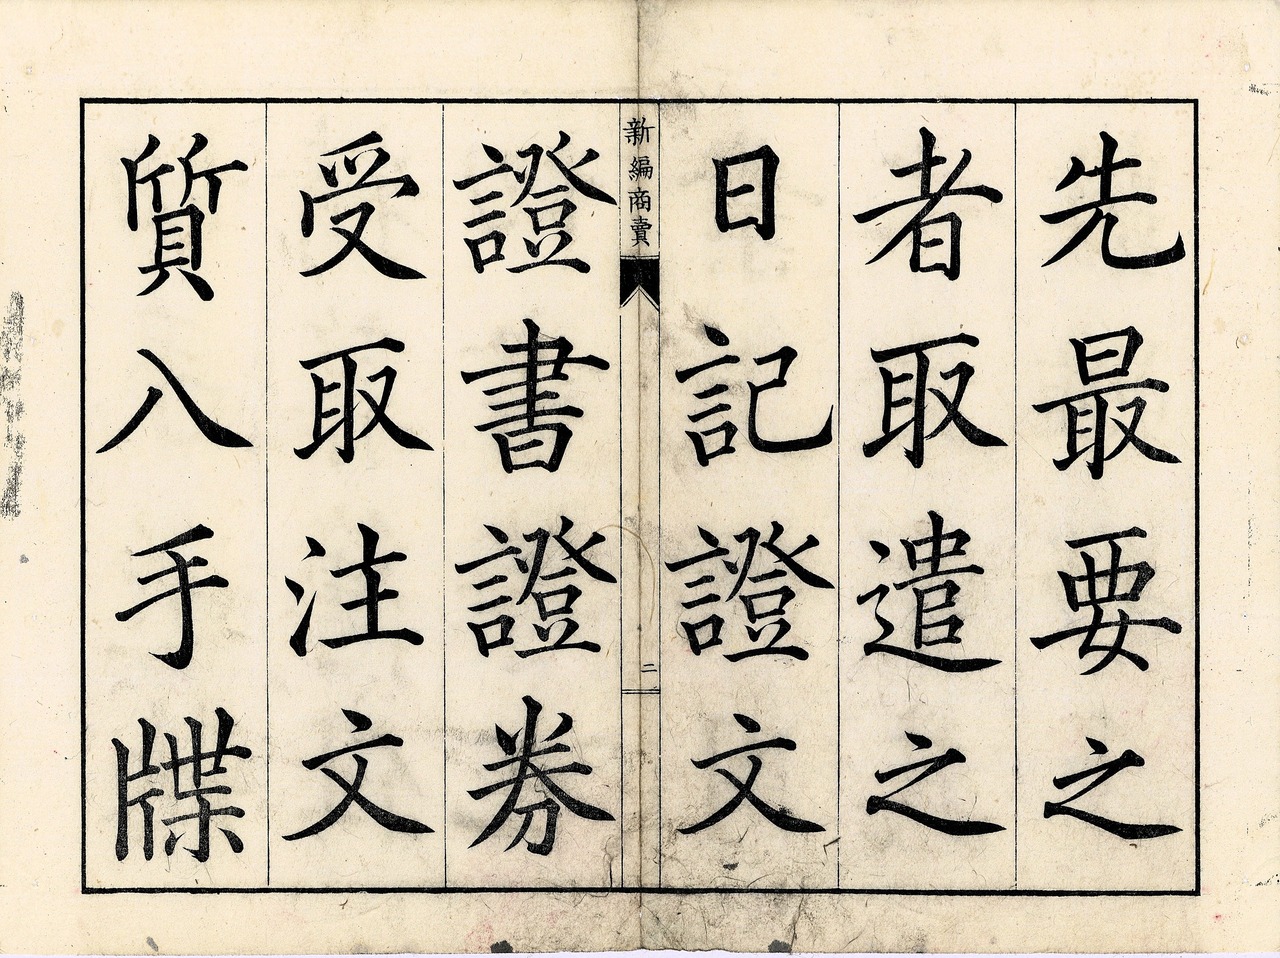 先最要之
者取遣之
日記證文
新編商賣
二
證書證券
受取注文
質入手牒